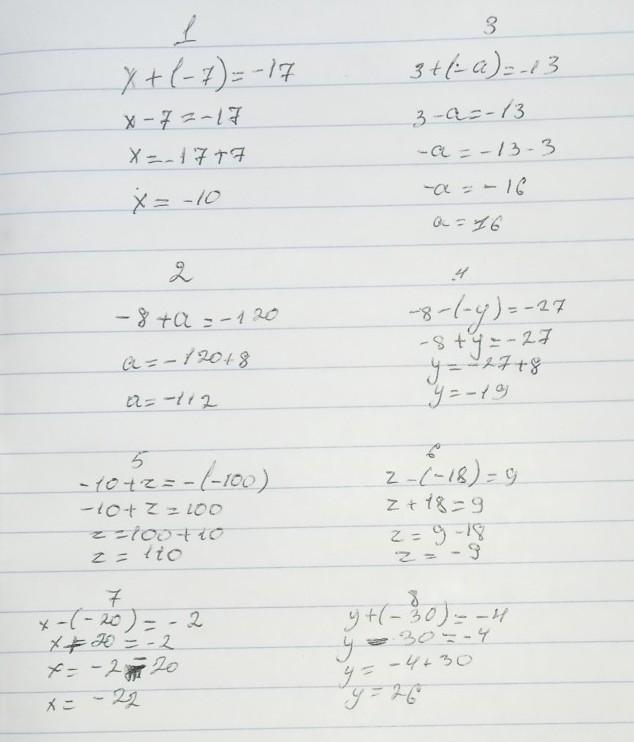 1
x + (-7) = -17
x - 7 = -17
x = -17 + 7
x = -10
3
3 + (-a) = -13
3 - a = -13
-a = -13 - 3
-a = -16
a = 16
2
-8 + a = -120
a = -120 + 8
a = -112
4
-8 - (-y) = -27
-8 + y = -27
y = -27 + 8
y = -19
5
-10 + z = -(-100)
-10 + z = 100
z = 100 + 10
z = 110
6
z - (-18) = 9
z + 18 = 9
z = 9 - 18
z = -9
7
x - (-20) = -2
x + 20 = -2
x = -2 - 20
x = -22
8
y + (-30) = -4
y - 30 = -4
y = -4 + 30
y = 26